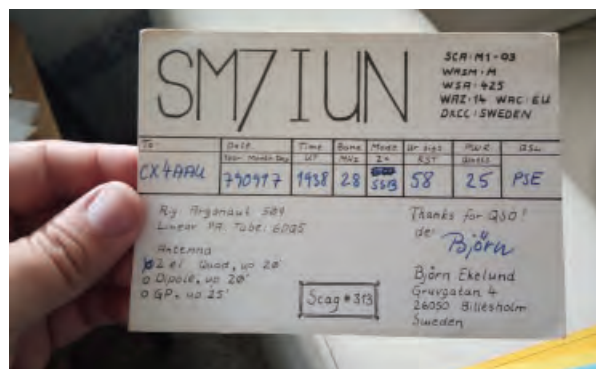 SM7IUN
SCA: M1-03
WASM: M
WSA: 425
WAZ: 14 WAC: EU
DXCC: SWEDEN
To: Date Time Band Mode Ur sigs PWR QSL
Year Month Day UT MHz 2× RST Watts
CX4AAU 790917 1938 28 SSB 58 25 PSE
Rig Argonaut 509
Linear PA. Tube: 6DQ5
Antenna
2 el Quad, up 20'
Dipole, up 20'
GP, up 25'
Scag #313
Thanks for QSO!
de:
Björn
Björn Ekelund
Gruvgatan 4
26050 Billesholm
Sweden